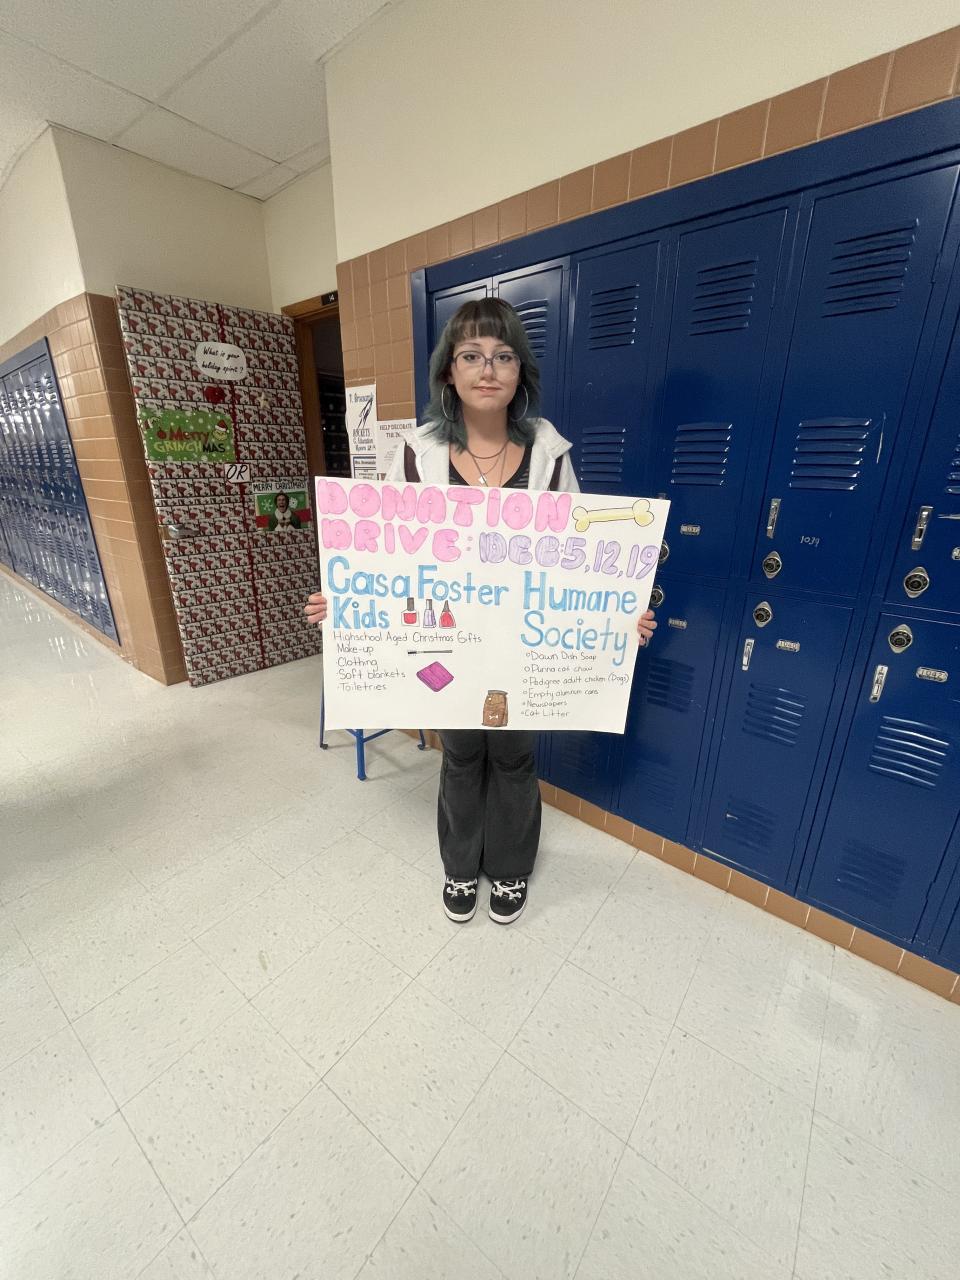 What is your
holiday spirit?
Merry
GRINCHMAS
OR
MERRY CHRISTMAS!
14
HELP DECORATE
DONATION
DRIVE: DEC:5,12,19
Casa Foster
Kids
Highschool Aged Christmas Gifts
Make-up
Clothing
Soft blankets
Toiletries
Humane
Society
Dawn Dish Soap
Purina cat chow
Pedigree adult chicken (Dogs)
Empty aluminum cans
Newspapers
Cat Litter
1039
1040
1042